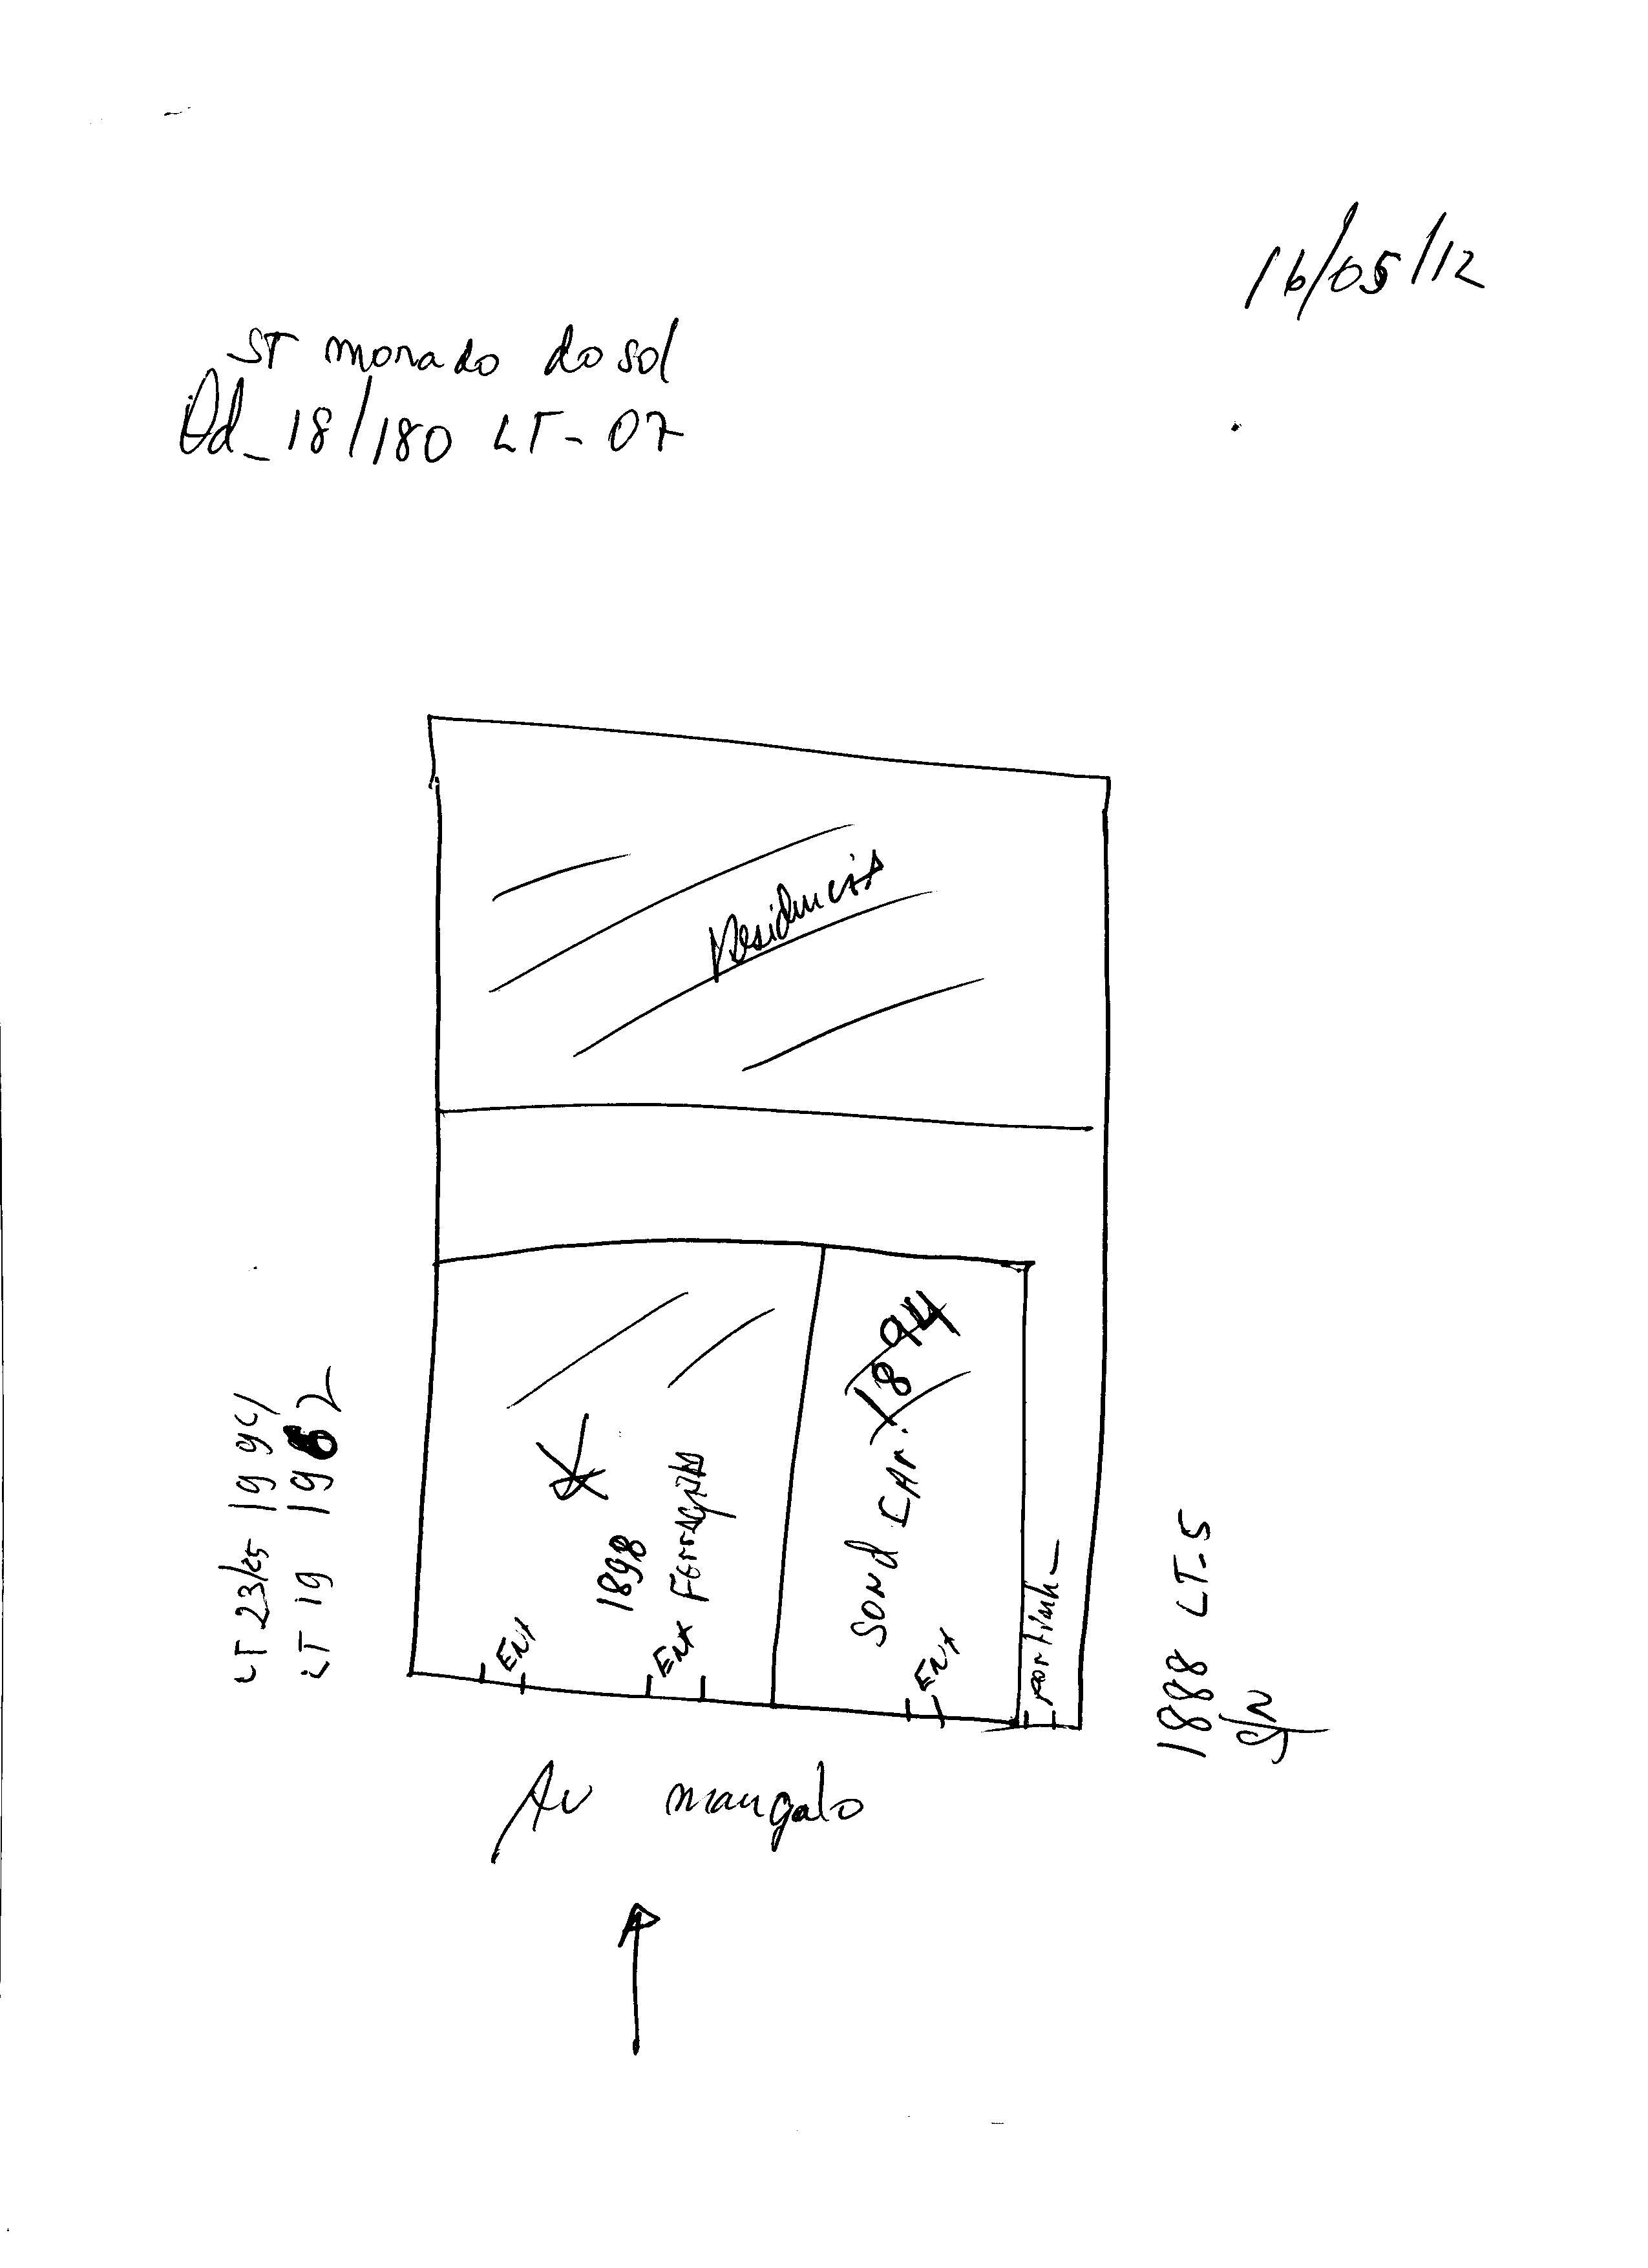 16/05/12
ST morado do sol
Qd_18/180 LT-07
Residencia
1894
SOND CAR.
1898
Ferragista
ENT
ENT
ENT
portinh
LT 23/25 1994
LT 19 1962
1888 LT-5
S/N
Av mangalo